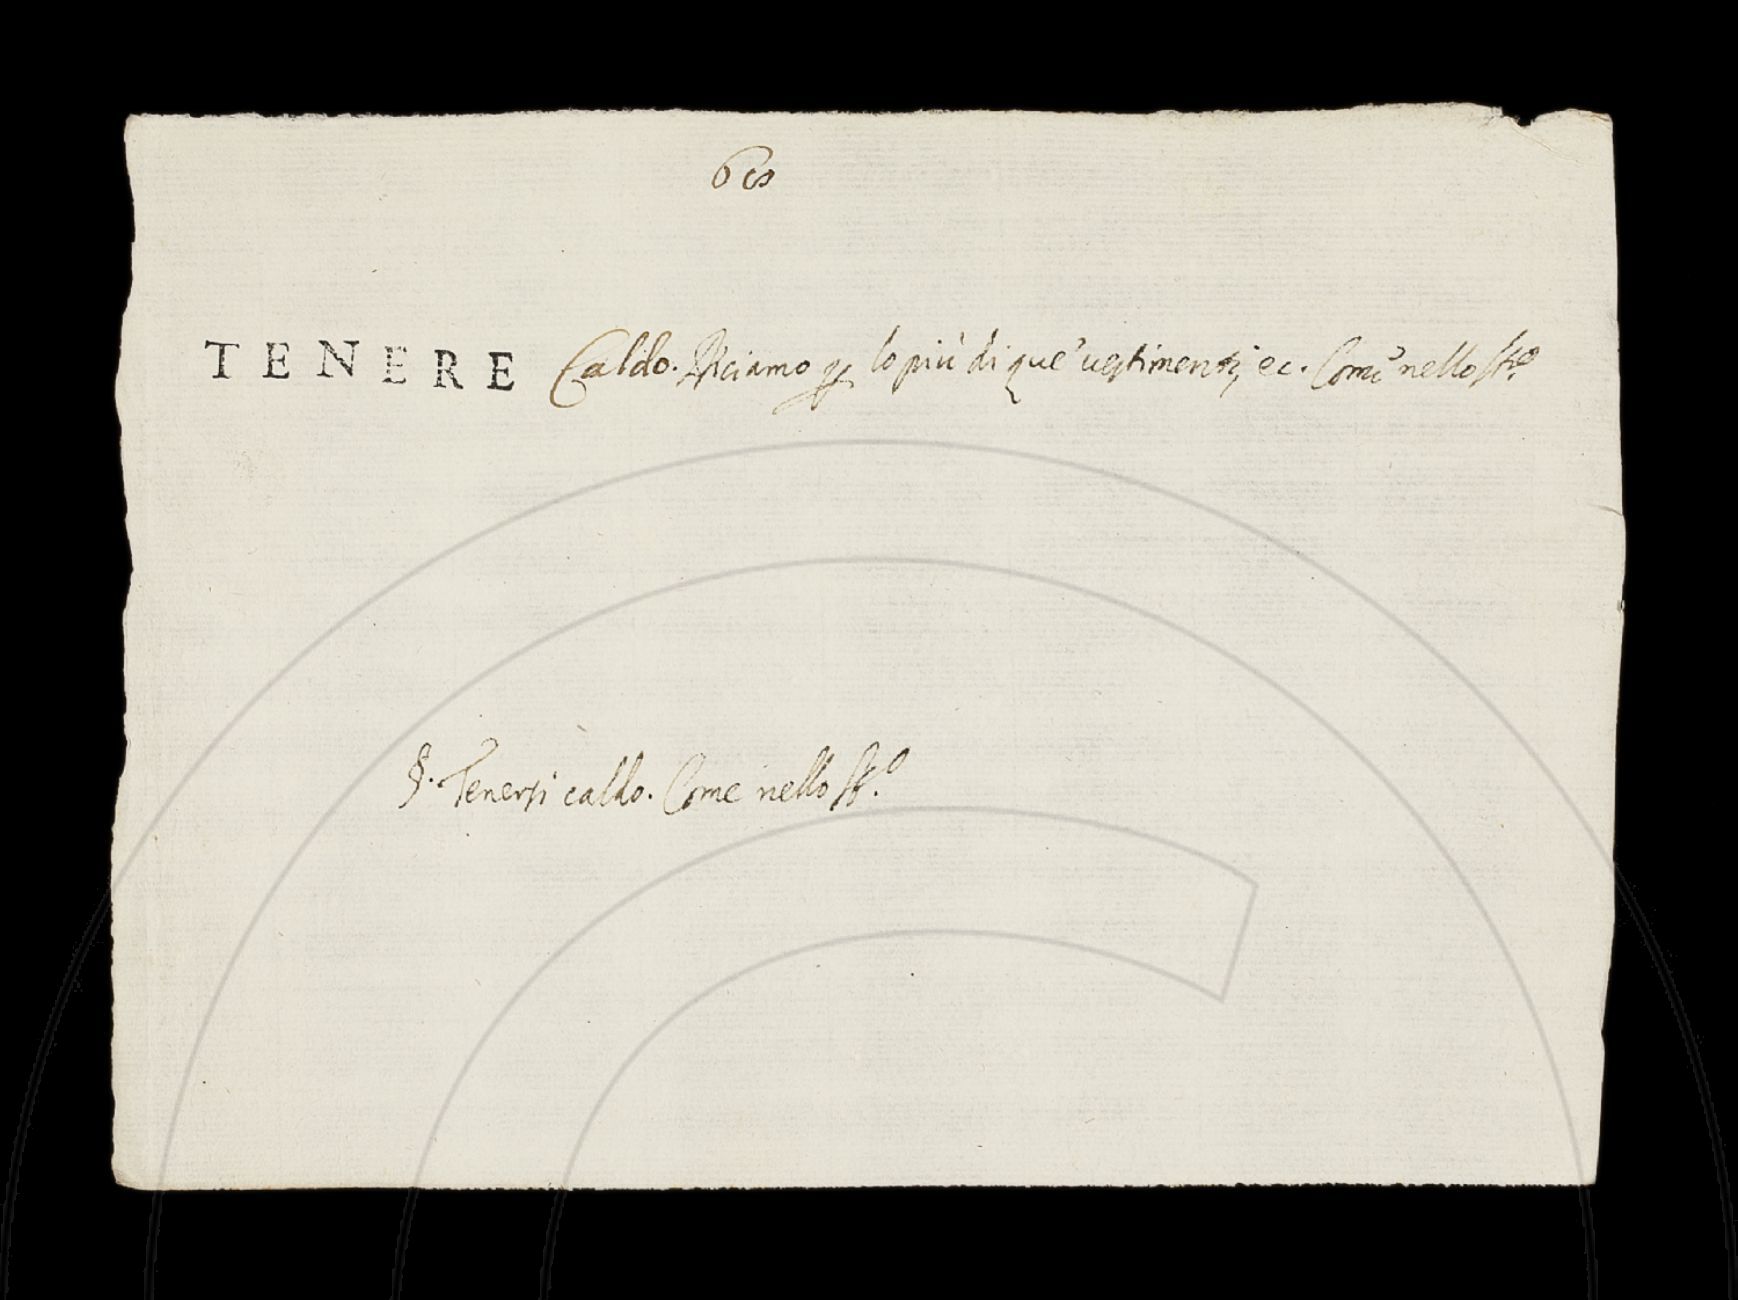 6cs
TENERE Caldo. Diciamo p lo più di que' uestimenti, ec. Come nello st.º
§. Tenersi caldo. Come nello st.º